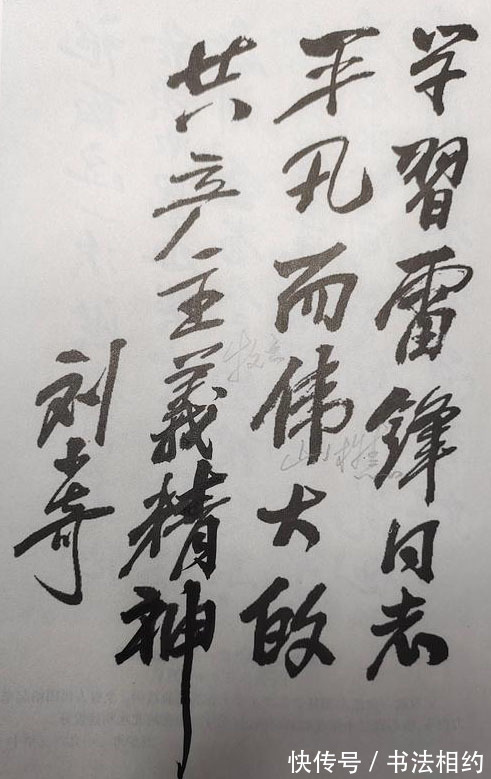 学習雷鋒同志
平凡而伟大的
共产主義精神
刘少奇
快传号 / 书法相约